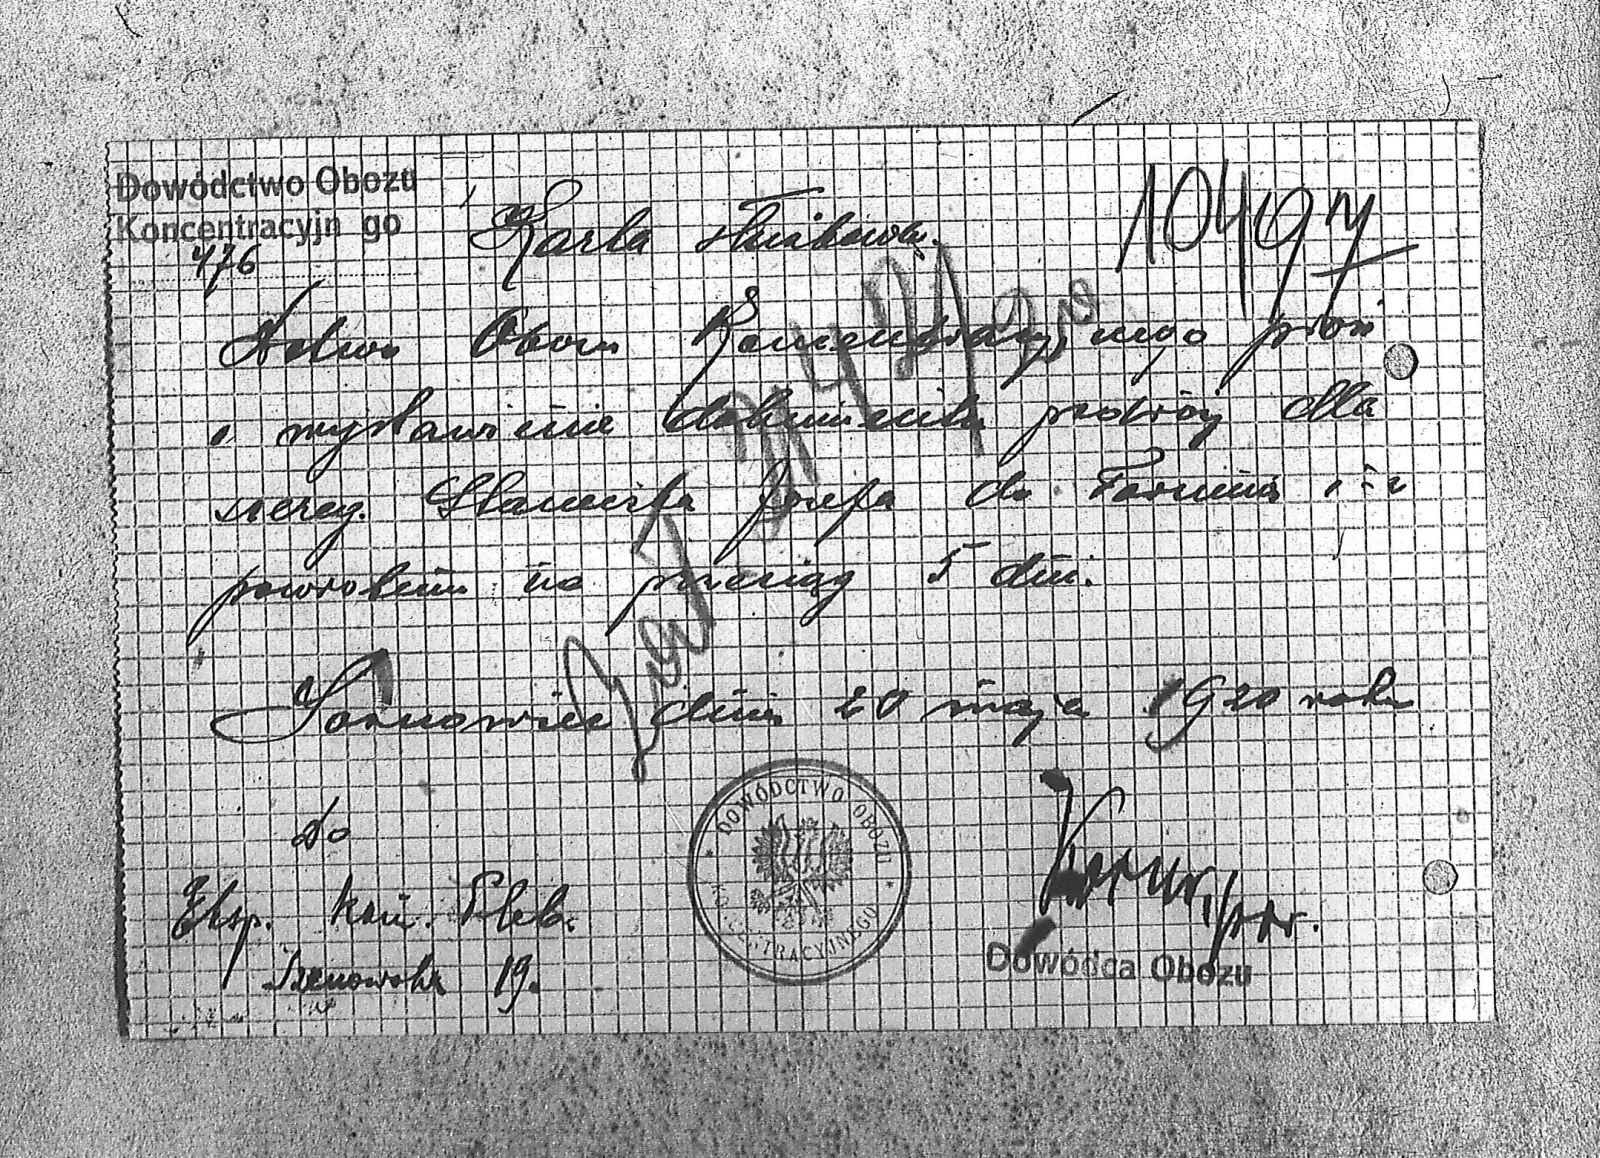 Dowództwo Obozu
Koncentracyjn go
476
Karta
10497
Dctwo Obozu Koncentracyjnego prosi
o wystawienie dokumentu podróży dla
szereg. Józefa do Torunia i z
powrotem na przeciąg 5 dni.
Sosnowiec dnia 20 maja 1920 roku
DOWÓDCTWO OBOZU
KONCENTRACYJNEGO
do
Eksp. kom. Pleb.
19.
Dowódca Obozu